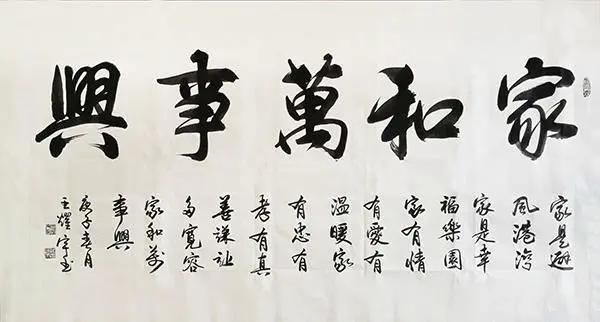 家和萬事興
家是避
風港灣
家是幸
福樂園
家有情
有愛有
溫暖家
有忠有
孝有真
善謙讓
多寬容
家和萬
事興
庚子春月
王耀宇書